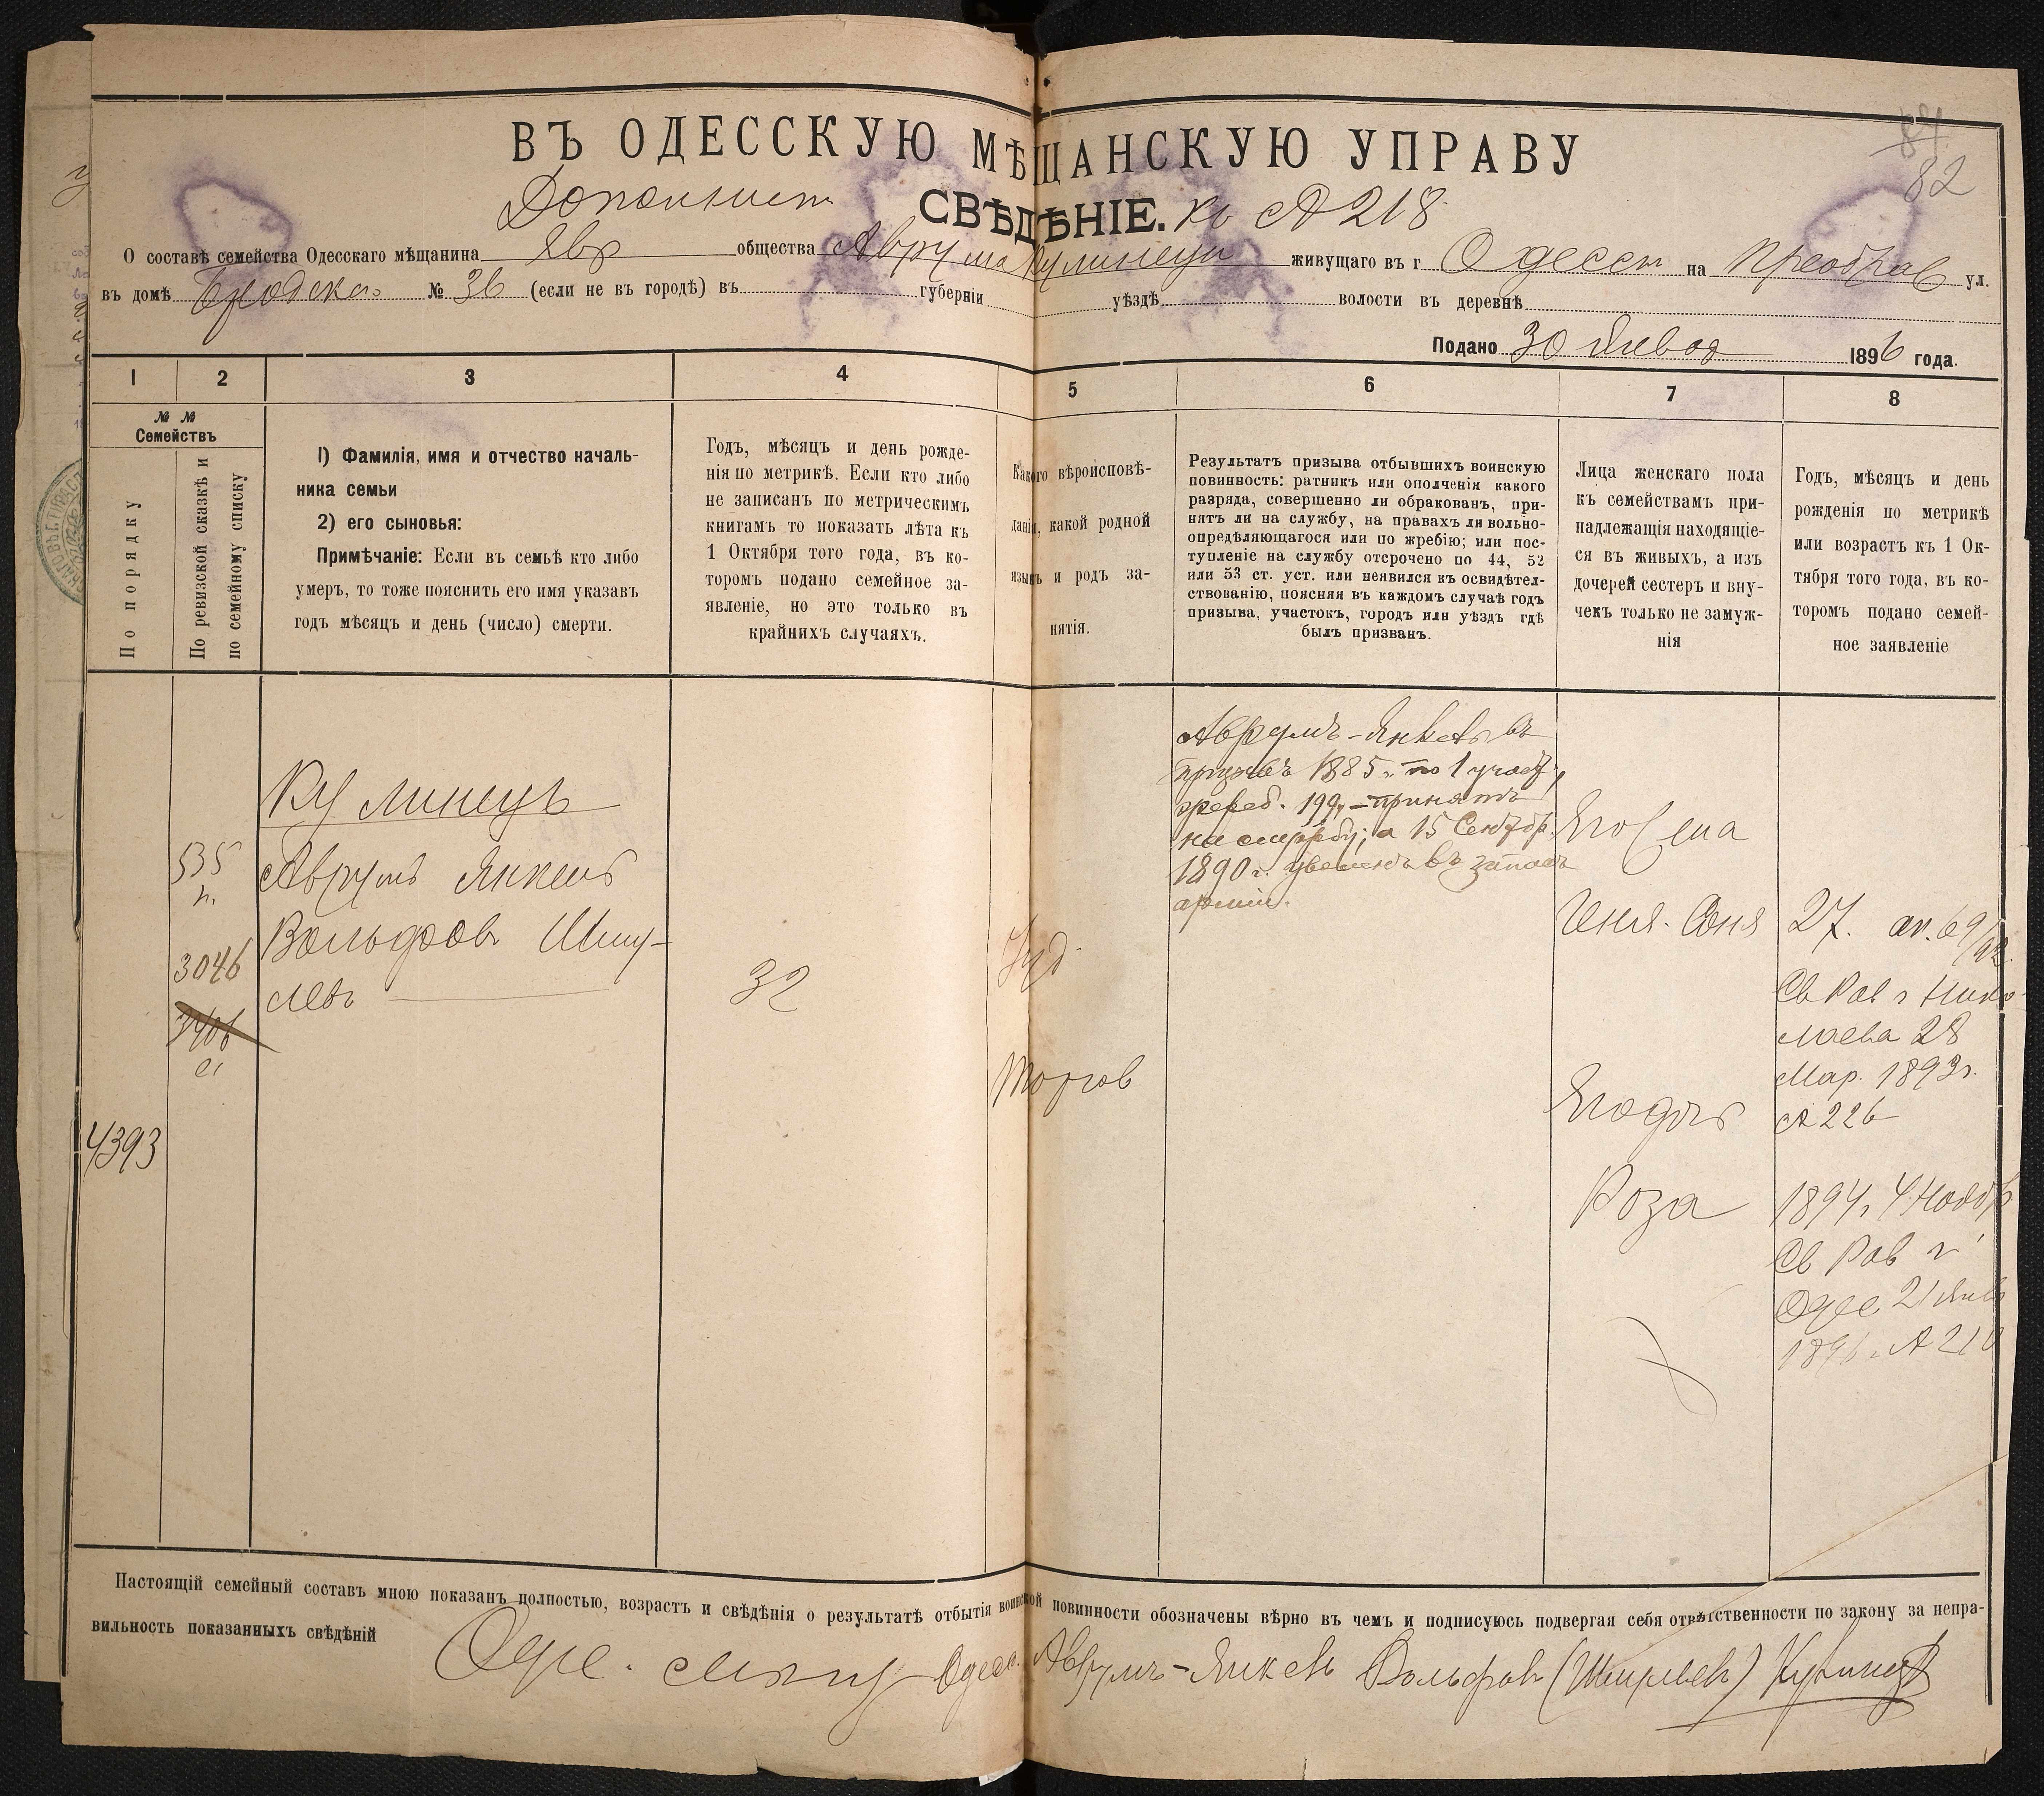 84
82
ВЪ ОДЕССКУЮ МѢЩАНСКУЮ УПРАВУ
Дополнит СВѢДѢНІЕ. къ № 218
О составѣ семейства Одесскаго мѣщанина Евр общества Аврума Кулинеца живущаго въ г. Одессѣ на Преображ ул.
въ домѣ Бродска № 36 (если не въ городѣ) въ губерніи уѣздѣ волости въ деревнѣ
Подано 30 Января 1896 года.
1 2 3 4 5 6 7 8
№ № Семействъ
По порядку
По ревизской сказкѣ и
по семейному списку
1) Фамилія, имя и отчество началь-
ника семьи
2) его сыновья:
Примѣчаніе: Если въ семьѣ кто либо
умеръ, то тоже пояснить его имя указавъ
годъ мѣсяцъ и день (число) смерти.
Годъ, мѣсяцъ и день рожде-
нія по метрикѣ. Если кто либо
не записанъ по метрическимъ
книгамъ то показать лѣта къ
1 Октября того года, въ ко-
торомъ подано семейное за-
явленіе, но это только въ
крайнихъ случаяхъ.
Какого вѣроисповѣ-
данія, какой родной
языкъ и родъ за-
нятія.
Результатъ призыва отбывшихъ воинскую
повинность: ратникъ или ополченія какого
разряда, совершенно ли обракованъ, при-
нятъ ли на службу, на правахъ ли вольно-
опредѣляющагося или по жребію; или пос-
тупленіе на службу отсрочено по 44, 52
или 53 ст. уст. или неявился къ освидѣтел-
ствованію, поясняя въ каждомъ случаѣ годъ
призыва, участокъ, городъ или уѣздъ гдѣ
былъ призванъ.
Лица женскаго пола
къ семействамъ при-
надлежащія находящіе-
ся въ живыхъ, а изъ
дочерей сестеръ и вну-
чекъ только не замуж-
нія
Годъ, мѣсяцъ и день
рожденія по метрикѣ
или возрастъ къ 1 Ок-
тября того года, въ ко-
торомъ подано семей-
ное заявленіе
4393
535
п.
3046
3406
Кулинецъ
Аврумъ Янкель
Вольфовъ Шму-
левъ
32
Іуд
Торгов
Аврумъ-Янкель въ
призывѣ 1885 г. по 1 участ,
жреб. 199, - принятъ
на службу; а 15 Сентябр.
1890 г. уволенъ въ запасъ
арміи.
Его жена
Геня-Соня
Его дочь
Роза
27.
Св Рав г Нико-
лаева 28
Мар. 1893 г.
№ 226
1894 г. 4 Ноябр
Св Рав г
Одес 21 Янв
1896 г. № 210
Настоящій семейный составъ мною показанъ полностью, возрастъ и свѣдѣнія о результатѣ отбытія воинской повинности обозначены вѣрно въ чемъ и подписуюсь подвергая себя отвѣтственности по закону за непра-
вильность показанныхъ свѣдѣній
Аврумъ-Янкель Вольфовъ (Шмулевъ) Кулинецъ